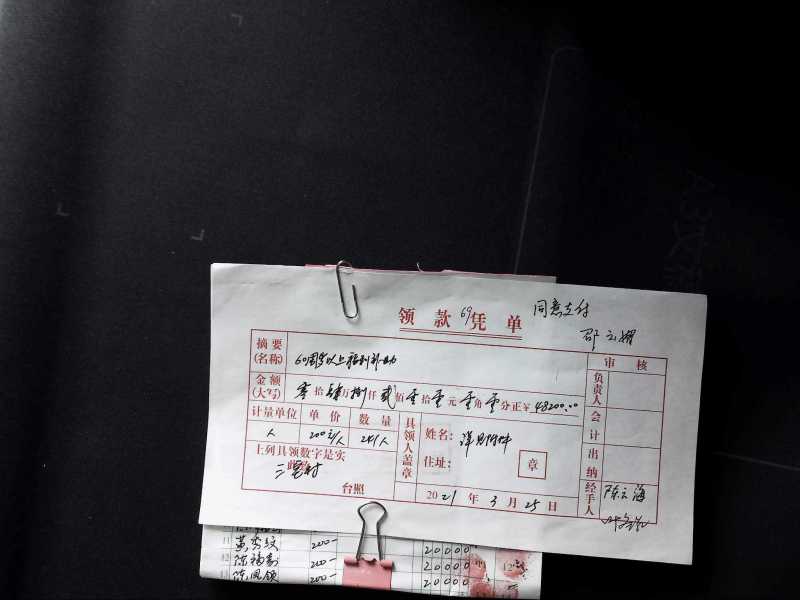 领款凭单
69
同意支付
摘要
(名称)
60周岁以上福利补助
审核
金额
(大写)
零拾肆万捌仟贰佰零拾零元零角零分正¥48200.00
负责人
计量单位 单价 数量
人 200元/人 241人
具领人盖章
姓名：详见附件
住址：
章
会计
出纳
上列具领数字是实
此致
台照
2021年3月25日
经手人
陈云海
11 黄秀纹 200- 20000
12 陈福 200- 20000
13 陈凤领 200- 20000